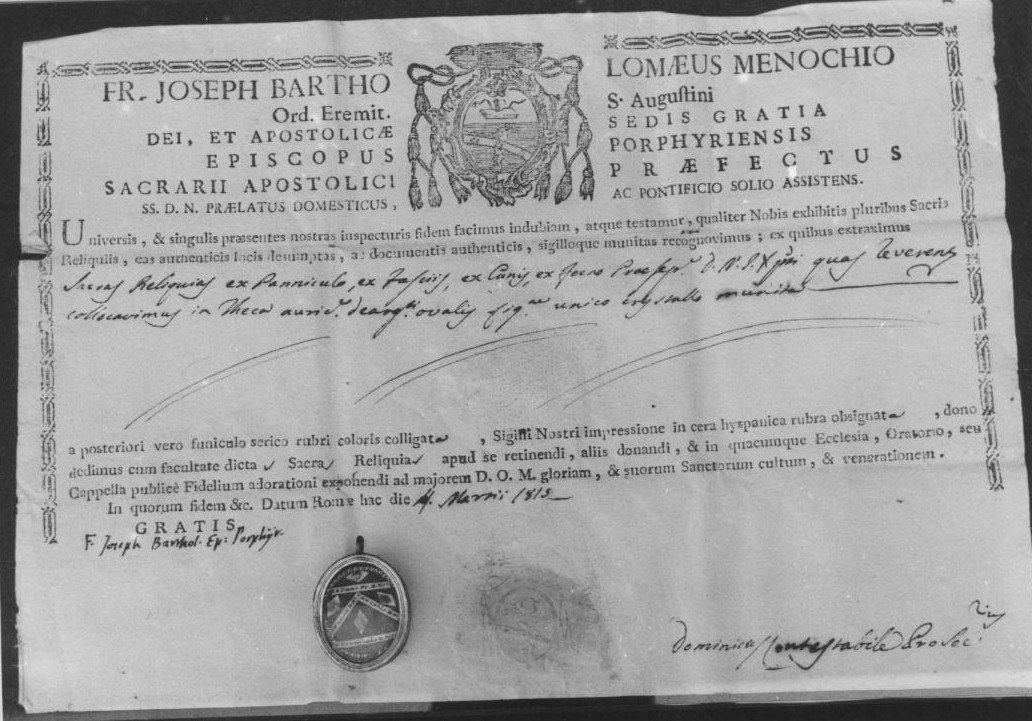 FR. JOSEPH BARTHO LOMÆUS MENOCHIO
Ord. Eremit. S. Augustini
DEI, ET APOSTOLICÆ SEDIS GRATIA
EPISCOPUS PORPHYRIENSIS
SACRARII APOSTOLICI PRÆFECTUS
SS. D. N. PRÆLATUS DOMESTICUS, AC PONTIFICIO SOLIO ASSISTENS.
Universis, & singulis præsentes nostras inspecturis fidem facimus indubiam, atque testamur, qualiter Nobis exhibitis pluribus Sacris
Reliquiis, eas authenticis locis desumptas, ac documentis authenticis, sigilloque munitas recognovimus; ex quibus extraximus
Sacras Reliquias ex Panniculo, ex Fasciis, ex Cunis, ex ferro Præsep. D. N. J. Xpti quas reverent
collocavimus in Theca auric. de arg. ovalis fig. unico crystallo munita
a posteriori vero funiculo serico rubri coloris colligata, Sigilli Nostri impressione in cera hyspanica rubra obsignata, dono
dedimus cum facultate dictas Sacras Reliquias apud se retinendi, aliis donandi, & in quacumque Ecclesia, Oratorio, seu
Cappella publicè Fidelium adorationi exponendi ad majorem D. O. M. gloriam, & suorum Sanctorum cultum, & venerationem.
In quorum fidem &c. Datum Romæ hac die Martii 1815
GRATIS
F. Joseph Barthol. Ep: Porphyr.
Dominicus Contestabile Prosec.